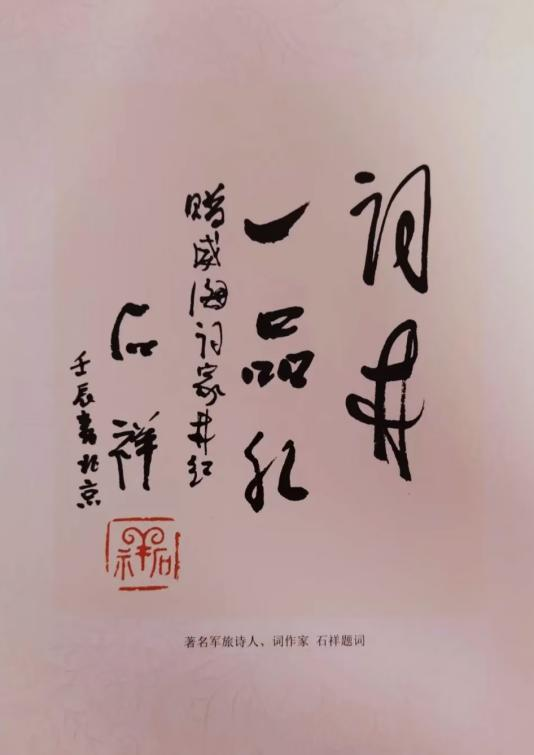 词井
一品红
赠威海词家井红
石祥
壬辰书北京
石祥
著名军旅诗人、词作家 石祥题词